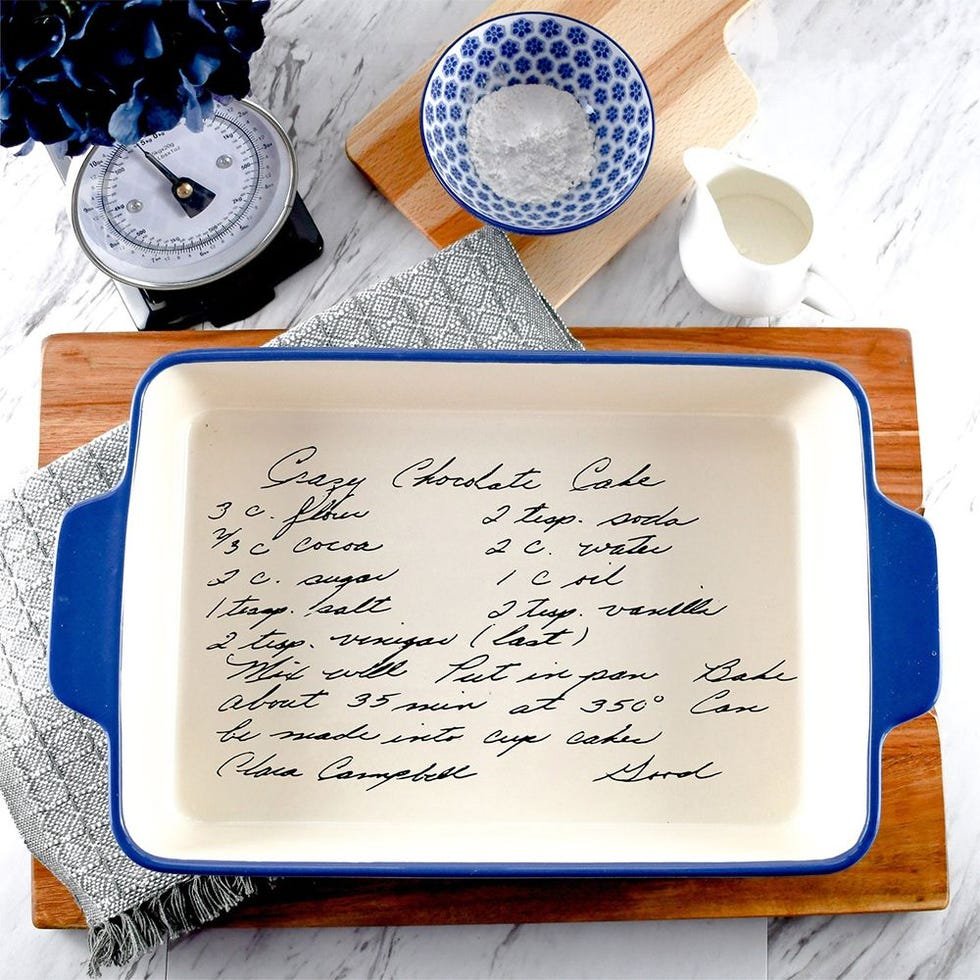 Crazy Chocolate Cake
3 c. flour 2 tsp. soda
2/3 c cocoa 2 c. water
2 c. sugar 1 c oil
1 teasp. salt 2 tsp. vanilla
2 tsp. vinigar (last)
Mix well Put in pan Bake
about 35 min at 350° Can
be made into cup cakes
Clara Campbell Good